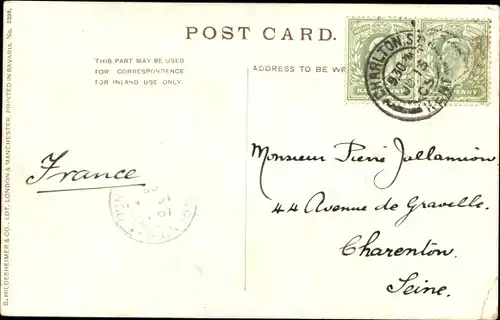 POST CARD.
THIS PART MAY BE USED
FOR CORRESPONDENCE
FOR INLAND USE ONLY.
ADDRESS TO BE
CHARLTON
KENT
S. HILDESHEIMER & CO., LDT. LONDON & MANCHESTER. PRINTED IN BAVARIA. No. 5236.
France
Monsieur Pierre Jallamion
44 Avenue de Gravelle.
Charenton.
Seine.